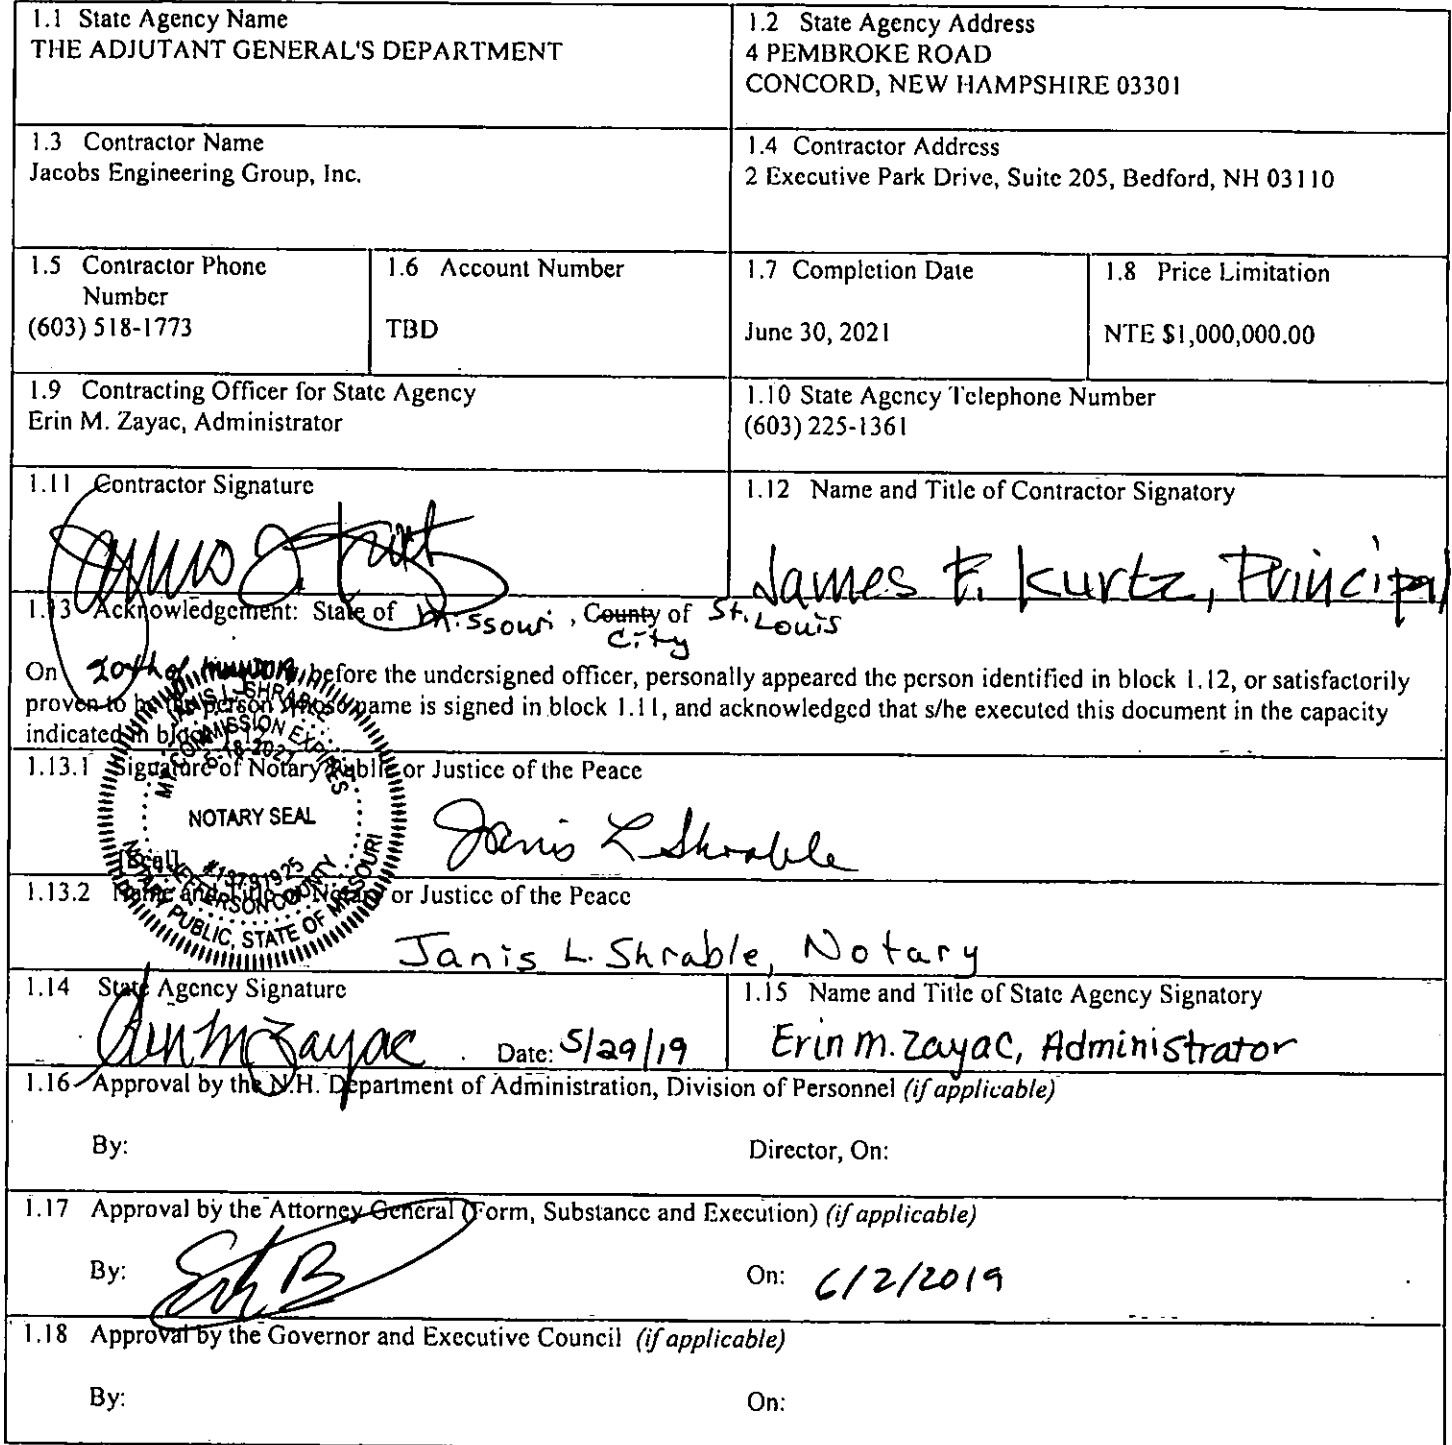 1.1 State Agency Name
THE ADJUTANT GENERAL'S DEPARTMENT
1.2 State Agency Address
4 PEMBROKE ROAD
CONCORD, NEW HAMPSHIRE 03301
1.3 Contractor Name
Jacobs Engineering Group, Inc.
1.4 Contractor Address
2 Executive Park Drive, Suite 205, Bedford, NH 03110
1.5 Contractor Phone
Number
(603) 518-1773
1.6 Account Number
TBD
1.7 Completion Date
June 30, 2021
1.8 Price Limitation
NTE $1,000,000.00
1.9 Contracting Officer for State Agency
Erin M. Zayac, Administrator
1.10 State Agency Telephone Number
(603) 225-1361
1.11 Contractor Signature
1.12 Name and Title of Contractor Signatory
James F. Kurtz, Principal
1.13 Acknowledgement: State of Missouri, County of St. Louis
City
On 20th of May 2019, before the undersigned officer, personally appeared the person identified in block 1.12, or satisfactorily
proven to be the person whose name is signed in block 1.11, and acknowledged that s/he executed this document in the capacity
indicated in block 1.12.
1.13.1 Signature of Notary Public or Justice of the Peace
JANIS L. SHRABLE
MY COMMISSION EXPIRES
6-18-2021
NOTARY SEAL
[Seal]
#13791925
JEFFERSON COUNTY
NOTARY PUBLIC, STATE OF MISSOURI
Janis L Shrable
1.13.2 Name and Title of Notary or Justice of the Peace
Janis L. Shrable, Notary
1.14 State Agency Signature
Erin M Zayac Date: 5/29/19
1.15 Name and Title of State Agency Signatory
Erin M. Zayac, Administrator
1.16 Approval by the N.H. Department of Administration, Division of Personnel (if applicable)
By:
Director, On:
1.17 Approval by the Attorney General (Form, Substance and Execution) (if applicable)
By:
On: 6/2/2019
1.18 Approval by the Governor and Executive Council (if applicable)
By:
On: